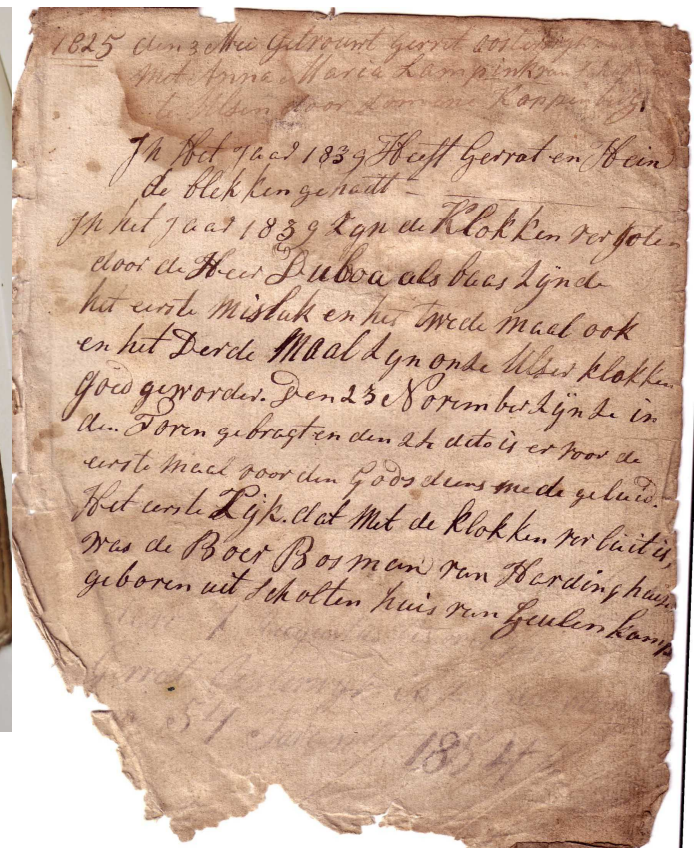 1825 den 3 Mei Getrouwt Gerret Oosterwyk
Met Anna Maria Lampink van
te Ulsen door Domine Koppen
In Het Jaar 1839 Heeft Gerrat en Hein
de blekken gehadt —
In het Jaar 1839 Zyn de Klokken vergoten
door de Heer Duboa als baas Zynde
het eerste Misluk en het twede maal ook
en het Derde Maal Zyn onse Ulser klokken
goed geworden. Den 23 November Zyn Ze in
den Toren gebragt en den 24 dito is er voor de
eerste Maal voor den Godsdiens mede geluid.
Het eerste Lijk. dat Met de klokken verluit is,
was de Boer Bosman van Hardinghuse
geboren uit Scholten huis van Geulen Kamp
Gerret
54 Jaren
1854